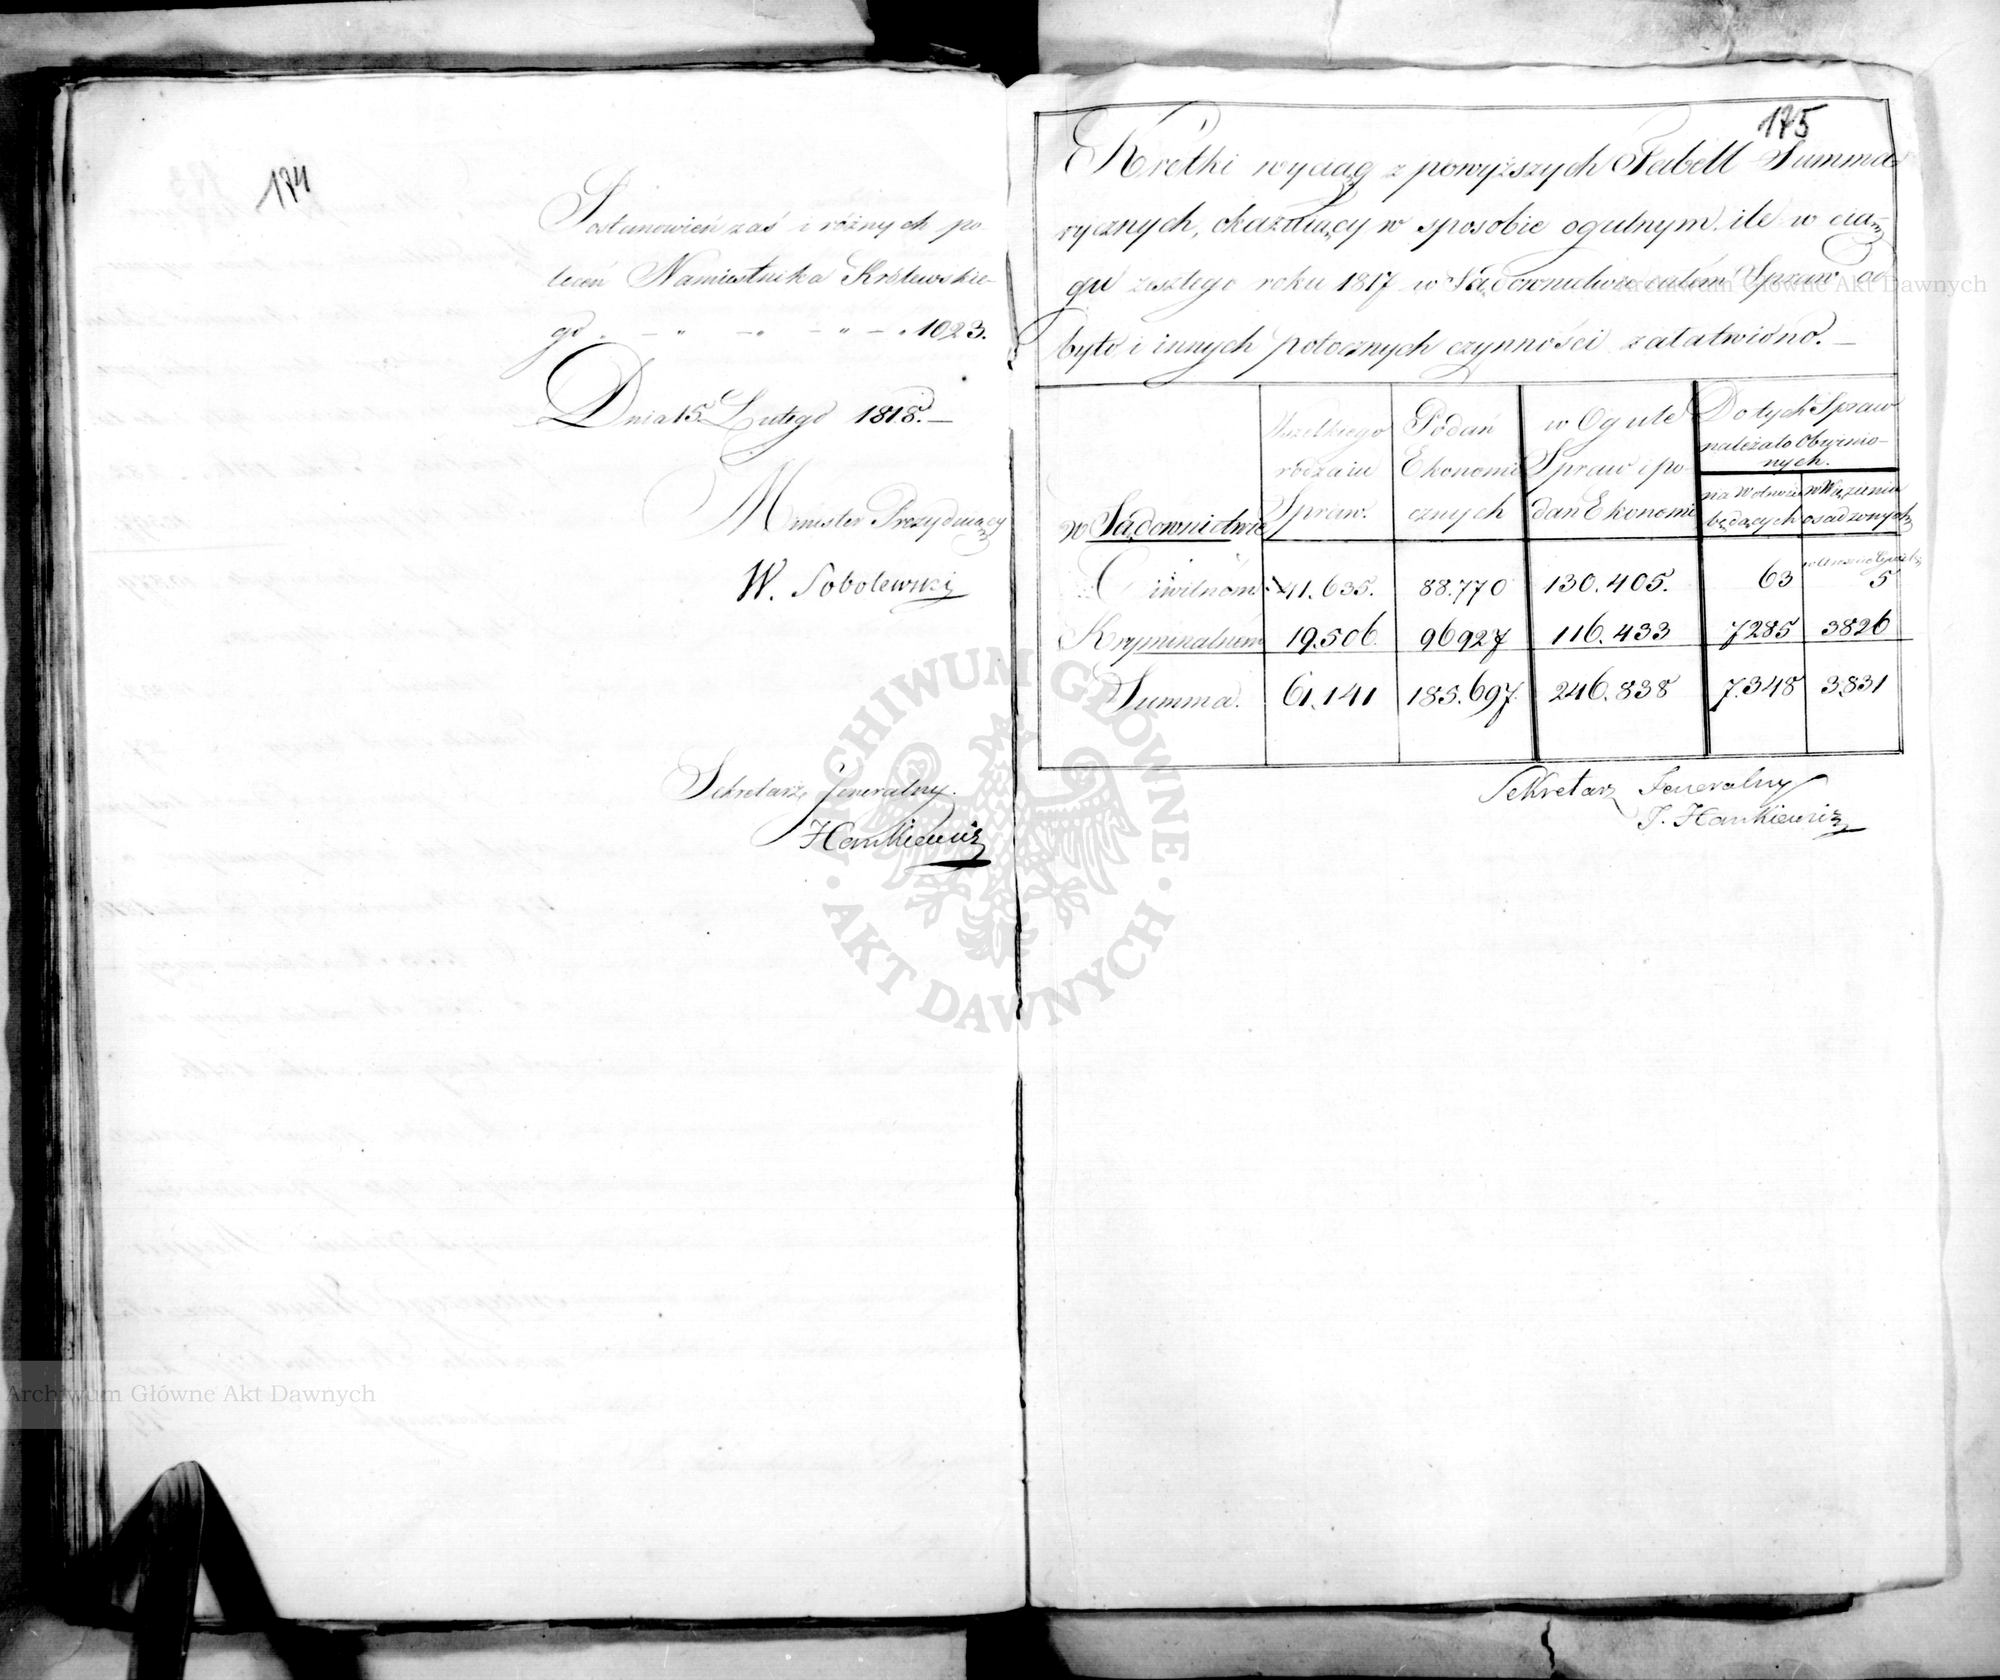 174
Postanowień zaś i różnych po
leceń Namiestnika Królewskie-
go . - " - " - " - " 1023.
Dnia 15 Lutego 1818. —
Minister Prezyduiący
W. Sobolewski
Sekretarz Jeneralny.
Hankiewicz
175
Krótki wyciąg z powyższych Tabell Summa-
rycznych, okazuiący w sposobie ogulnym, ile w cią-
gu zeszłego roku 1817 w Sądownictwie całém Spraw od-
byto i innych potocznych czynności załatwiono. —
w Sądownictwie
Wszelkiego
rodzaiu
Spraw.
Podań
Ekonomi
cznych
w Ogule
Spraw i po-
dań Ekonomi
Do tych Spraw
należało Obwinio-
nych.
na Wolności
będących
w Więzieniu
osadzonych
Ciwilném 41.635. 88.770 130.405. 63 5
Kryminalném 19.506. 96927 116.433 7285 3826
Summa. 61.141 185.697. 246.838 7.348 3.831
Sekretarz Jeneralny
J. Hankiewicz
ARCHIWUM GŁÓWNE · AKT DAWNYCH ·
Archiwum Główne Akt Dawnych
Archiwum Główne Akt Dawnych